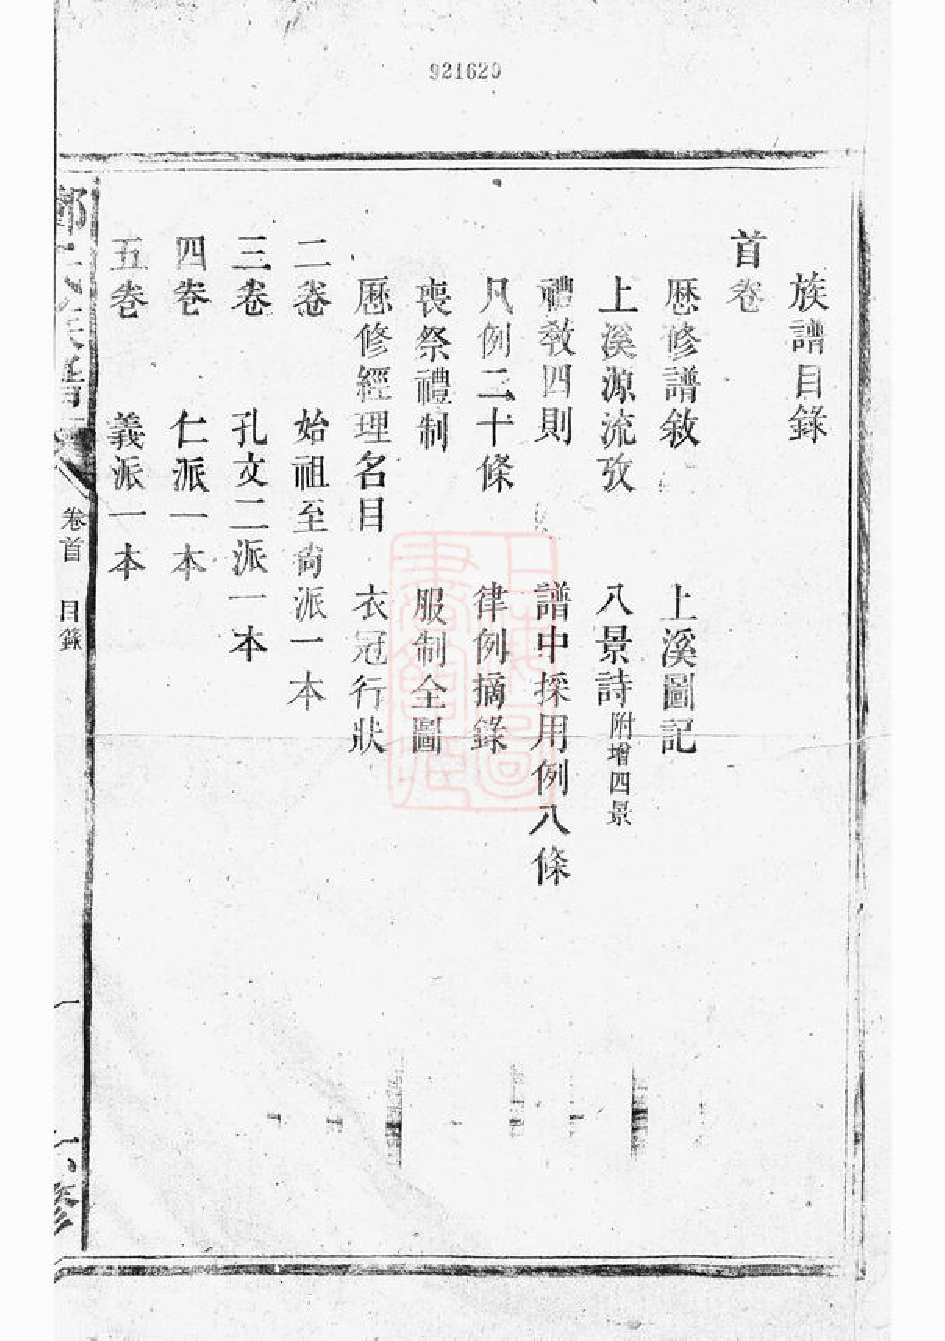 921620
族譜目錄
首卷
歷修譜敘 上溪圖記
上溪源流攷 八景詩 附增四景
禮教四則 譜中採用例八條
凡例二十條 律例摘錄
喪祭禮制 服制全圖
歷修經理名目 衣冠行狀
二卷 始祖至尚派一本
三卷 孔文二派一本
四卷 仁派一本
五卷 義派一本
鄭氏族譜 卷首 目錄 一 修
上海圖書館藏